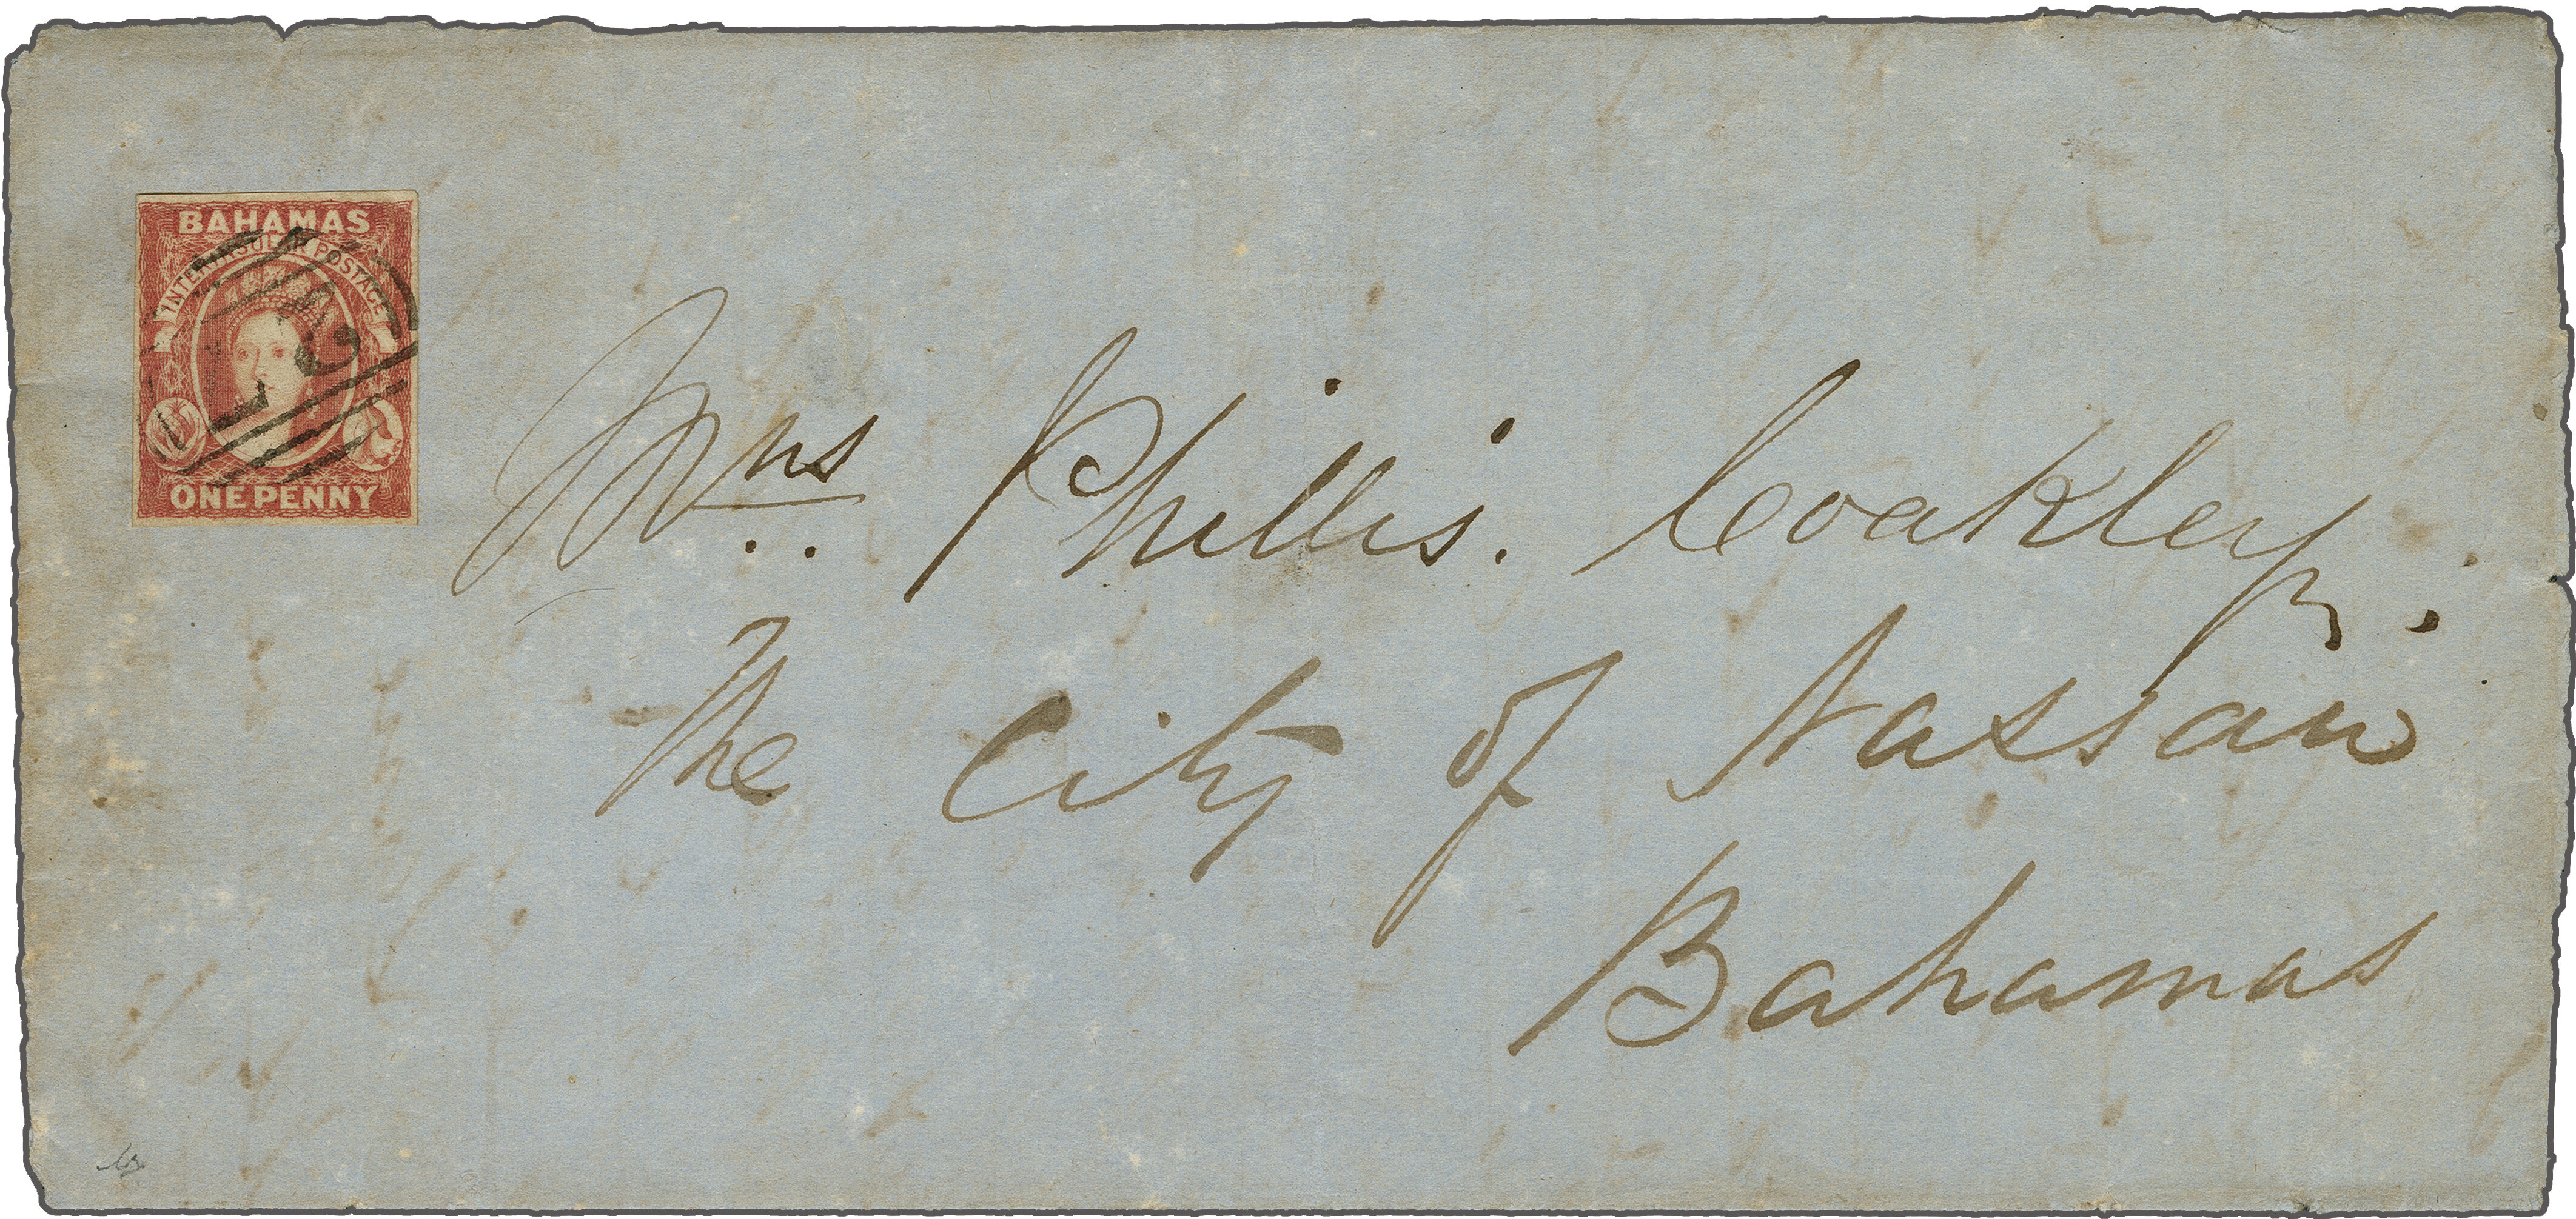 BAHAMAS
INTERINSULAR POSTAGE
ONE PENNY
Mrs Phillis. Coakley.
The City of Nassau
Bahamas